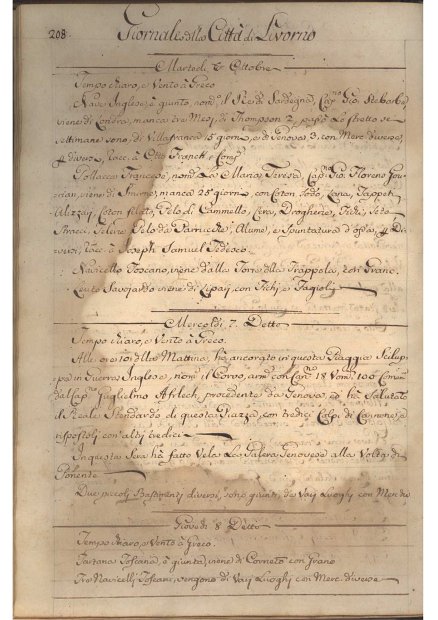 208.
Giornale della Città di Livorno
Martedì 6 Ottobre
Tempo chiaro, e Vento à Greco
Nave Inglese è giunta, nom.ta il Rè di Sardegna, Cap.no Gio.
viene di Londra, manca tre Mesi, di Thompson 2, papò Lo stretto
settimane sono, di Villafranca 15 giorni, e da Genova 3, con Merc. diverse,
e diversi, racc. à Otto Franck e Comp.
Pollacca Francese, nom.ta La Maria Teresa, Cap. Gio. Floreno
viene di Smirne, manca 28 giorni, con Coton Sodo, Lana, Tappeti
Coton filato, Pelo di Cammello, Cera, Drogherie, Fichi, Seta
Stracci, Pelo di Alume, e Spuntatura d'ossa, e
racc. à Joseph Samuel Tedesco.
Navicello Toscano, viene dalla Torre della Trappola, con Grano.
Leuto Savojardo viene di con Fichi e Fagioli
Mercoldì 7. Detto
Tempo chiaro, e Vento à Greco.
Alle ore 10 della Mattina, hà ancorato in questa Piaggia
da Guerra Inglese, nom. il Corvo, arm. con Can. 18 Vom. 100
dal Cap. Guglielmo procedente da Genova, e hà Salutato
il Reale Stendardo di questa Piazza, con tredici Colpi di Cannone, e
rispostoli con altri tredici
In questa Sera hà fatto Vela La Galera Genovese alla Volta di
Ponente
Due piccoli Bastimenti diversi, sono giunti, da Varj Luoghi con Merc. div.e
Giovedì 8 Detto
Tempo chiaro, e Vento à Greco.
Tartana Toscana, è giunta, viene di Corneto con Grano
Tre Navicelli Toscani, vengono di Varj Luoghi con Merc. diverse